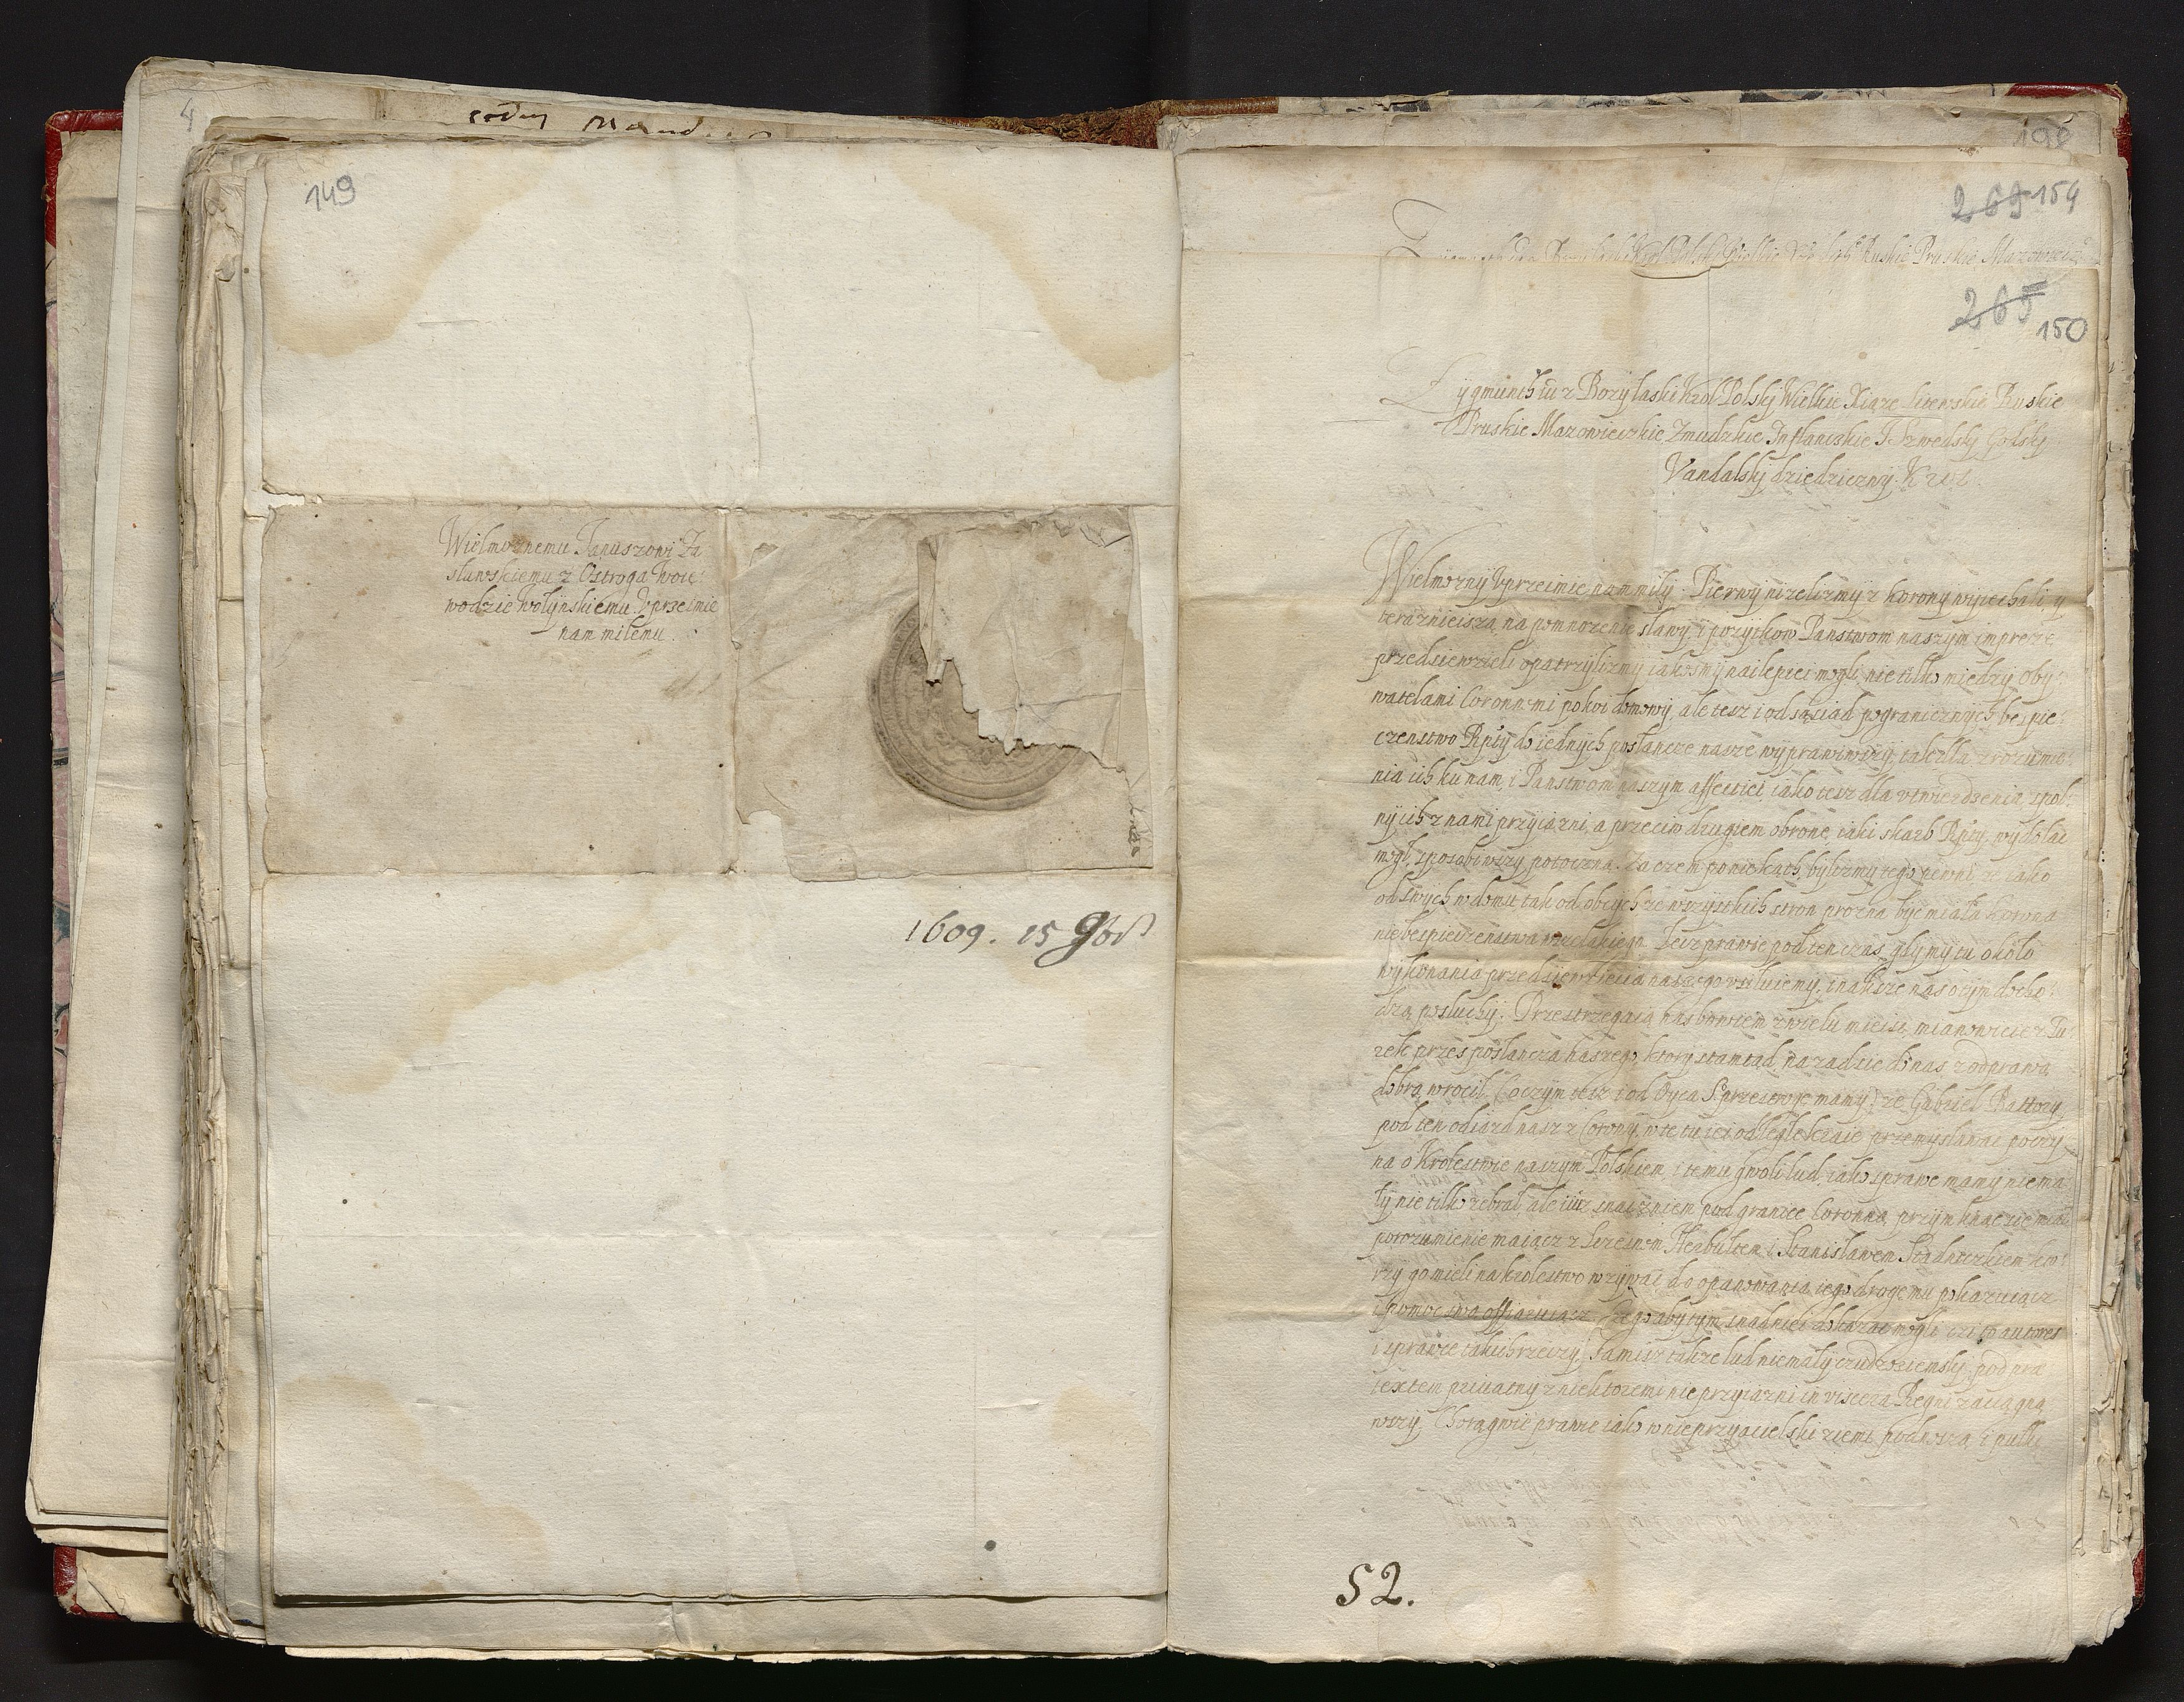 4
149
Wielmoznemu Januszowi Za
sławskiemu z Ostroga Woie
wodzie Wołynskiemu Vprzeimie
nam miłemu.
1609. 15 9br
198
269 154
Ruskie Pruskie Mazowieczkie
265
150
Zygmunth iii z Bozy łaski Krol Polsky Wielkie Xiąze Litewskie Ruskie
Pruskie Mazowieczkie Zmudzkie Inflanczkie I Szwedsky Gotsky
Vandalsky dziedziczny Krol
Wielmozny Vprzeimie nam miły. Pierwy nizelizmy z korony wyiechali, y
teraznieiszą, na pomnozenie sławy, i pozytkow Panstwom naszym impreze
przedsiewzieli opatrzylizmy iakosmy nailepiei mogli, nie tilko miedzy oby-
watelami Coronnemi pokoi domowy, ale tesz i od sąsiad pogranicznych bespie-
czenstwo Rpty do iednych posłancze nasze wyprawiwszy, tak dla zrozumie-
nia ich ku nam, i Panstwom naszym affectiei, iako tesz dla vtwierdzenia spol-
nych z nami przyiazni, a przeciw drugiem obronę, iaki skarb Rpty, wydołac
mogł, sposobiwszy potoczną. Zaczem poniekąch bylizmy tego pewni, ze iako
od swych w domu tak od obcych ze wszystkich stron prozna byc miała korona
niebespieczenstwa wszelakiego. Lecz prawie pod ten czas, gdy my tu około
wykonania przedsięwzięcia naszego vsiłuiemy, inaksze nas o tym docho-
dzą posłuchy. Przestrzegaią nas bowiem z wielu mieisc, mianowicie z Tu-
rek przes posłancza naszego, ktory stamtąd, na zad sie do nas z odprawą
dobrą wrocił, (o czym tesz i od Oyca S. przestrogę mamy) ze Gabriel Battory
pod ten odiazd nasz z Corony, w te tu iei odległe kraie przemyslawac poczy-
na o Krolestwie naszym Polskiem, i temu gwoli lud, iako sprawe mamy niema-
ły nie tilko zebrał, ale iusz znacznie pod granice Coronne przymknąc sie miał
porozumienie maiącz z Herbultem i Stanisławem Stadniczkiem kto-
rzy go mieli na krolestwo wzywac, do opanowania iego drogę mu pokazuiącz
i pomoc swą offiaruiącz. Czego aby tym snadniei dokazac mogli, ciz co autores
i sprawce takich rzeczy, sami sz takze lud niemały czudzoziemsky, pod prae
textem priuatny z niektoremi nieprzyiazni in viscera Regni zaciągną
wszy, Chorągwie prawie iako w nieprzyacielski ziemi podnoszą, i pułky
52.